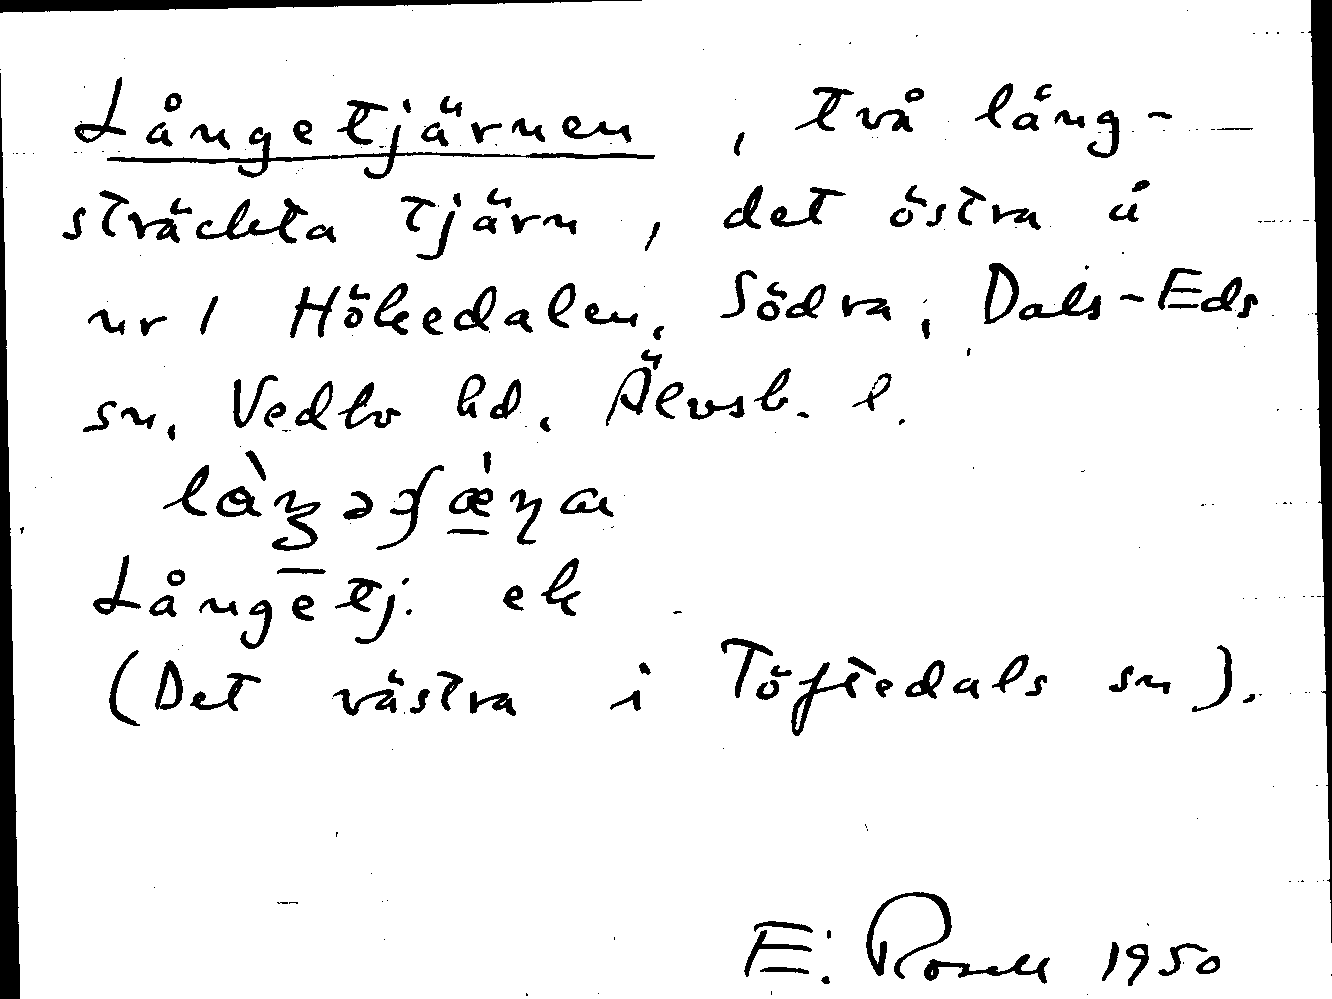 Långetjärnen, två lång-
sträckta tjärn, det östra å
nr 1 Hökedalen, Södra, Dals-Eds
sn, Vedbo hd, Älvsb. l.
Långetj. ek
(Det västra i Töftedals sn).
E. Rosell 1950